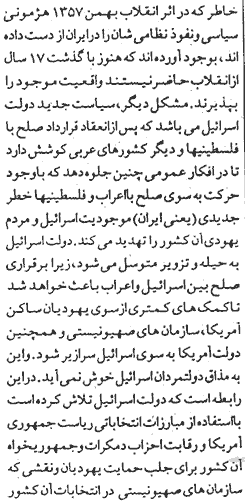 خاطر که در اثر انقلاب بهمن ۱۳۵۷ هژمونی
سیاسی و نفوذ نظامی شان را در ایران از دست داده
اند، بوجود آورده اند که هنوز با گذشت ۱۷ سال
از انقلاب حاضر نیستند واقعیت موجود را
بپذیرند. مشکل دیگر، سیاست جدید دولت
اسرائیل می باشد که پس از انعقاد قرارداد صلح با
فلسطینیها و دیگر کشورهای عربی کوشش دارد
تا در افکار عمومی چنین جلوه دهد که باوجود
حرکت به سوی صلح با اعراب و فلسطینیها خطر
جدیدی (یعنی ایران) موجودیت اسرائیل و مردم
یهودی آن کشور را تهدید می کند. دولت اسرائیل
به حیله و تزویر متوسل می شود، زیرا برقراری
صلح بین اسرائیل و اعراب باعث خواهد شد
تا کمک های کمتری از سوی یهودیان ساکن
آمریکا، سازمان های صهیونیستی و همچنین
دولت آمریکا به سوی اسرائیل سرازیر شود. و این
به مذاق دولتمردان اسرائیل خوش نمی آید. در این
رابطه است که دولت اسرائیل تلاش کرده است
با استفاده از مبارزات انتخاباتی ریاست جمهوری
آمریکا و رقابت احزاب دمکرات و جمهوریخواه
آن کشور برای جلب حمایت یهودیان و نقشی که
سازمان های صهیونیستی در انتخابات آن کشور